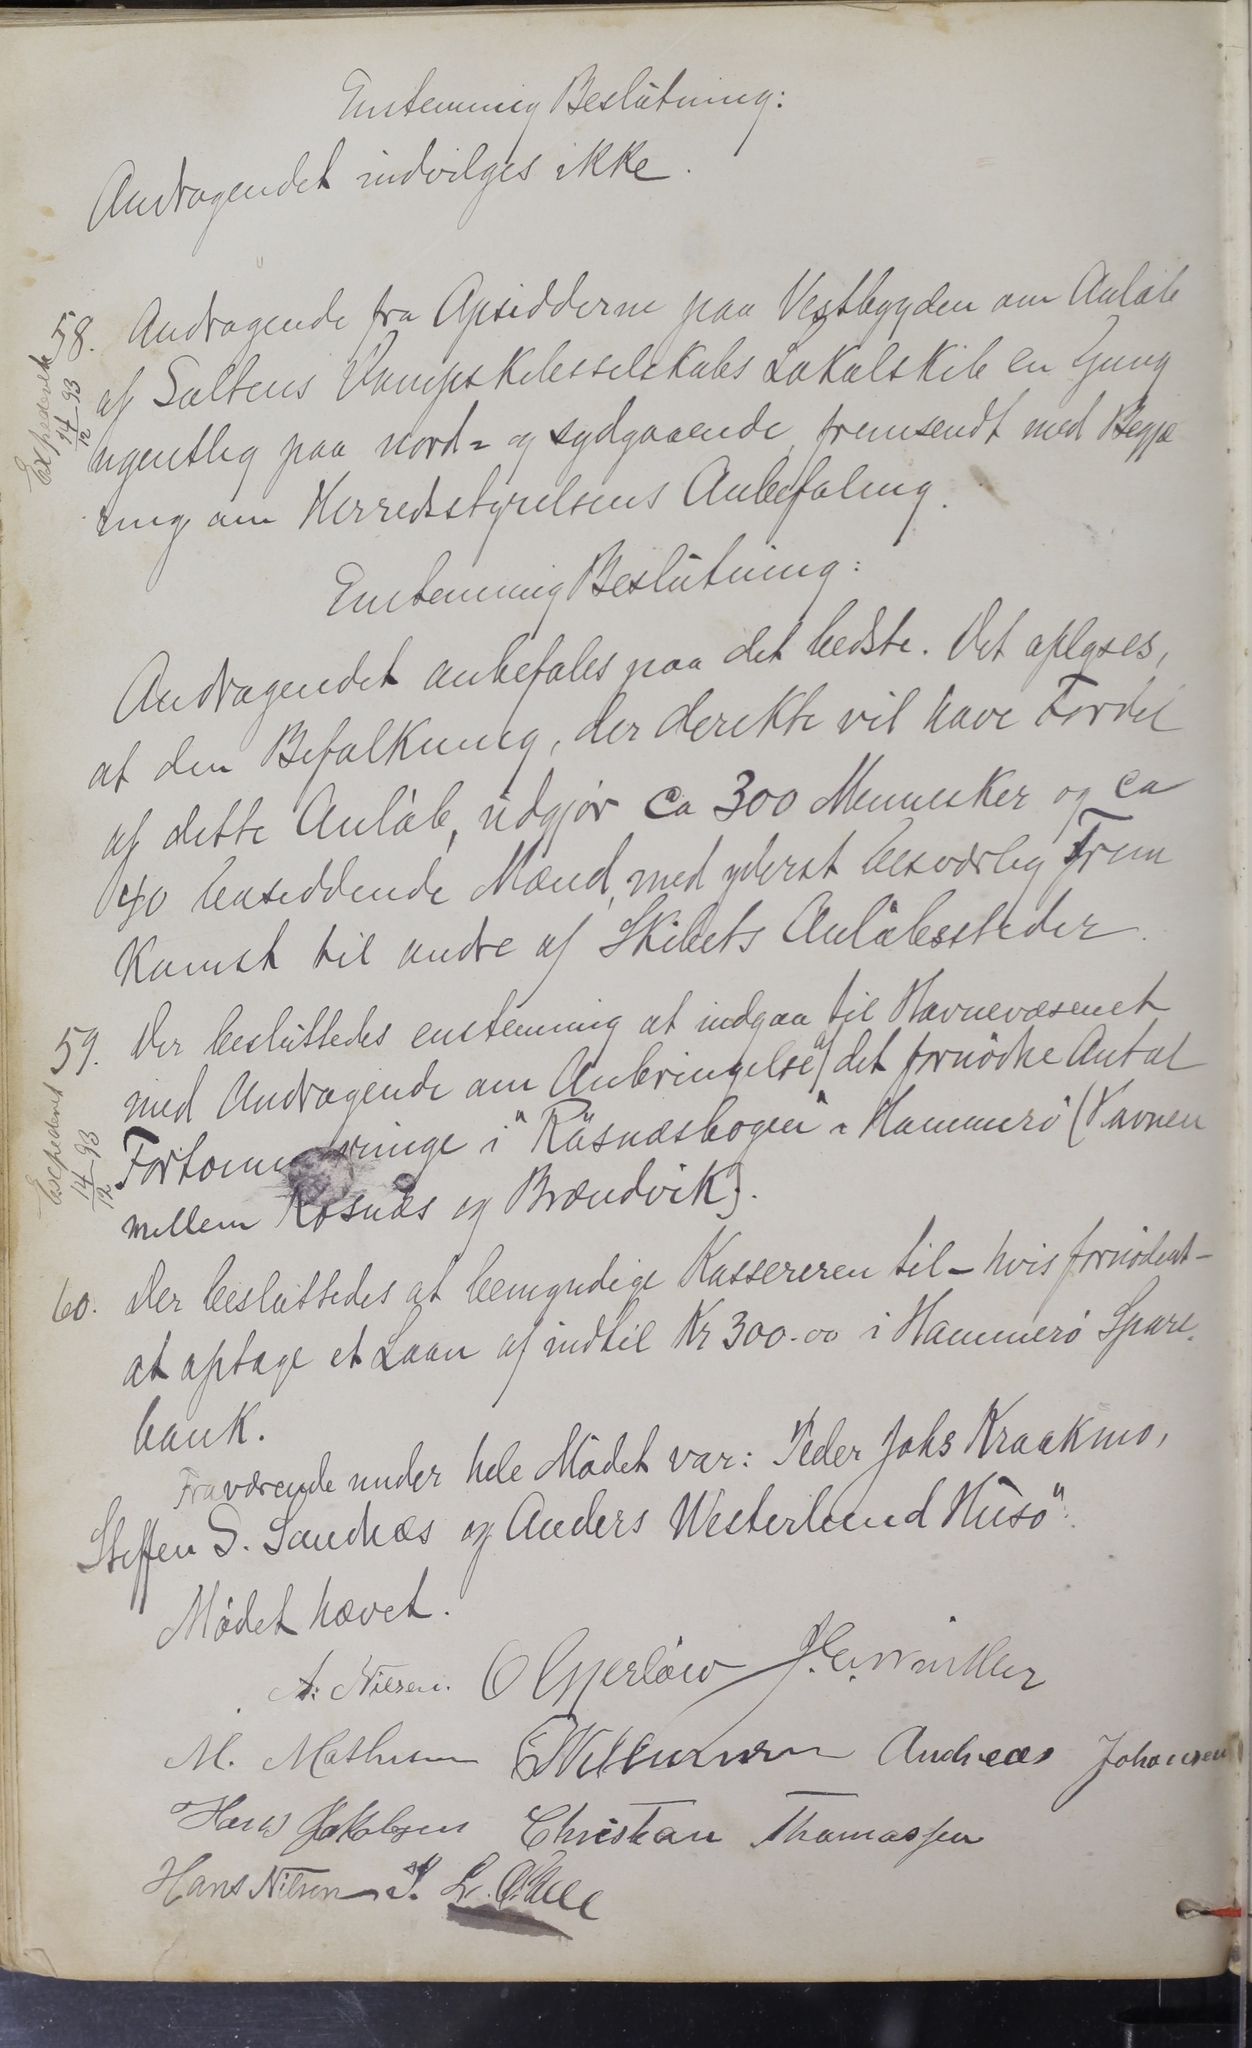 Enstemmig Beslutning:
Andragendet indvilges ikke.
58. Andragende fra Opsidderne paa Vestbygden om Anløb
Expederet 14/12 93
af Saltens Dampskibsselskabs Lokalskib en Gang
ugentlig paa nord= og sydgaaende, fremsendt med Begjæ
ring om Herredsstyrelsens Anbefaling.
Enstemmig Beslutning:
Andragendet anbefales paa det bedste. Det oplyses,
at den Befolkning, der derekte vil have Fordel
af dette Anløb, udgjør ca 300 Mennesker og ca
40 boesiddende Mænd, med yderst besværlig Frem
komst til andre af Skibets Anløbssteder.
59. Der besluttedes enstemmig at indgaa til Havnevæsenet
Expederet 14/12 93
med Andragende om Anbringelse af det fornødne Antal
Fortøinringe i "Rúsnæsbogen" i Hammerø (Havnen
mellem Røsnæs og Brændvik).
60. Der besluttedes at bemyndige Kassereren til – hvis fornødent –
at optage et Laan af indtil Kr 300.00 i Hammerø Spare
bank.
Fraværende under hele Mødet var: Peder Johs Kraakmo,
Steffen S. Sandnæs og Anders Westerlund Husø.
Mødet hævet.
A. Nilsen. O Gjerløw
M. Mathisen Andreas Johansen
Hans Jakobsen Christian Thomassen
Hans Nilsen